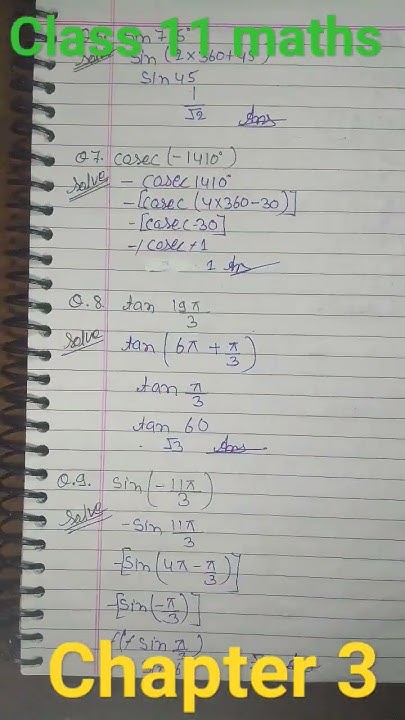 Class 11 maths
Solve sin (2×360+45)
sin 45
1
√2 Ans
Q7. cosec (-1410°)
Solve - cosec 1410°
-[cosec (4×360-30)]
-[cosec-30]
1 Ans
Q.8. tan 19π
3
Solve tan (6π + π
3)
tan π
3
tan 60
√3 Ans
Q.9. sin (-11π
3)
Solve -sin 11π
3
-[sin (4π - π
3)]
-[sin (-π
3)]
Chapter 3